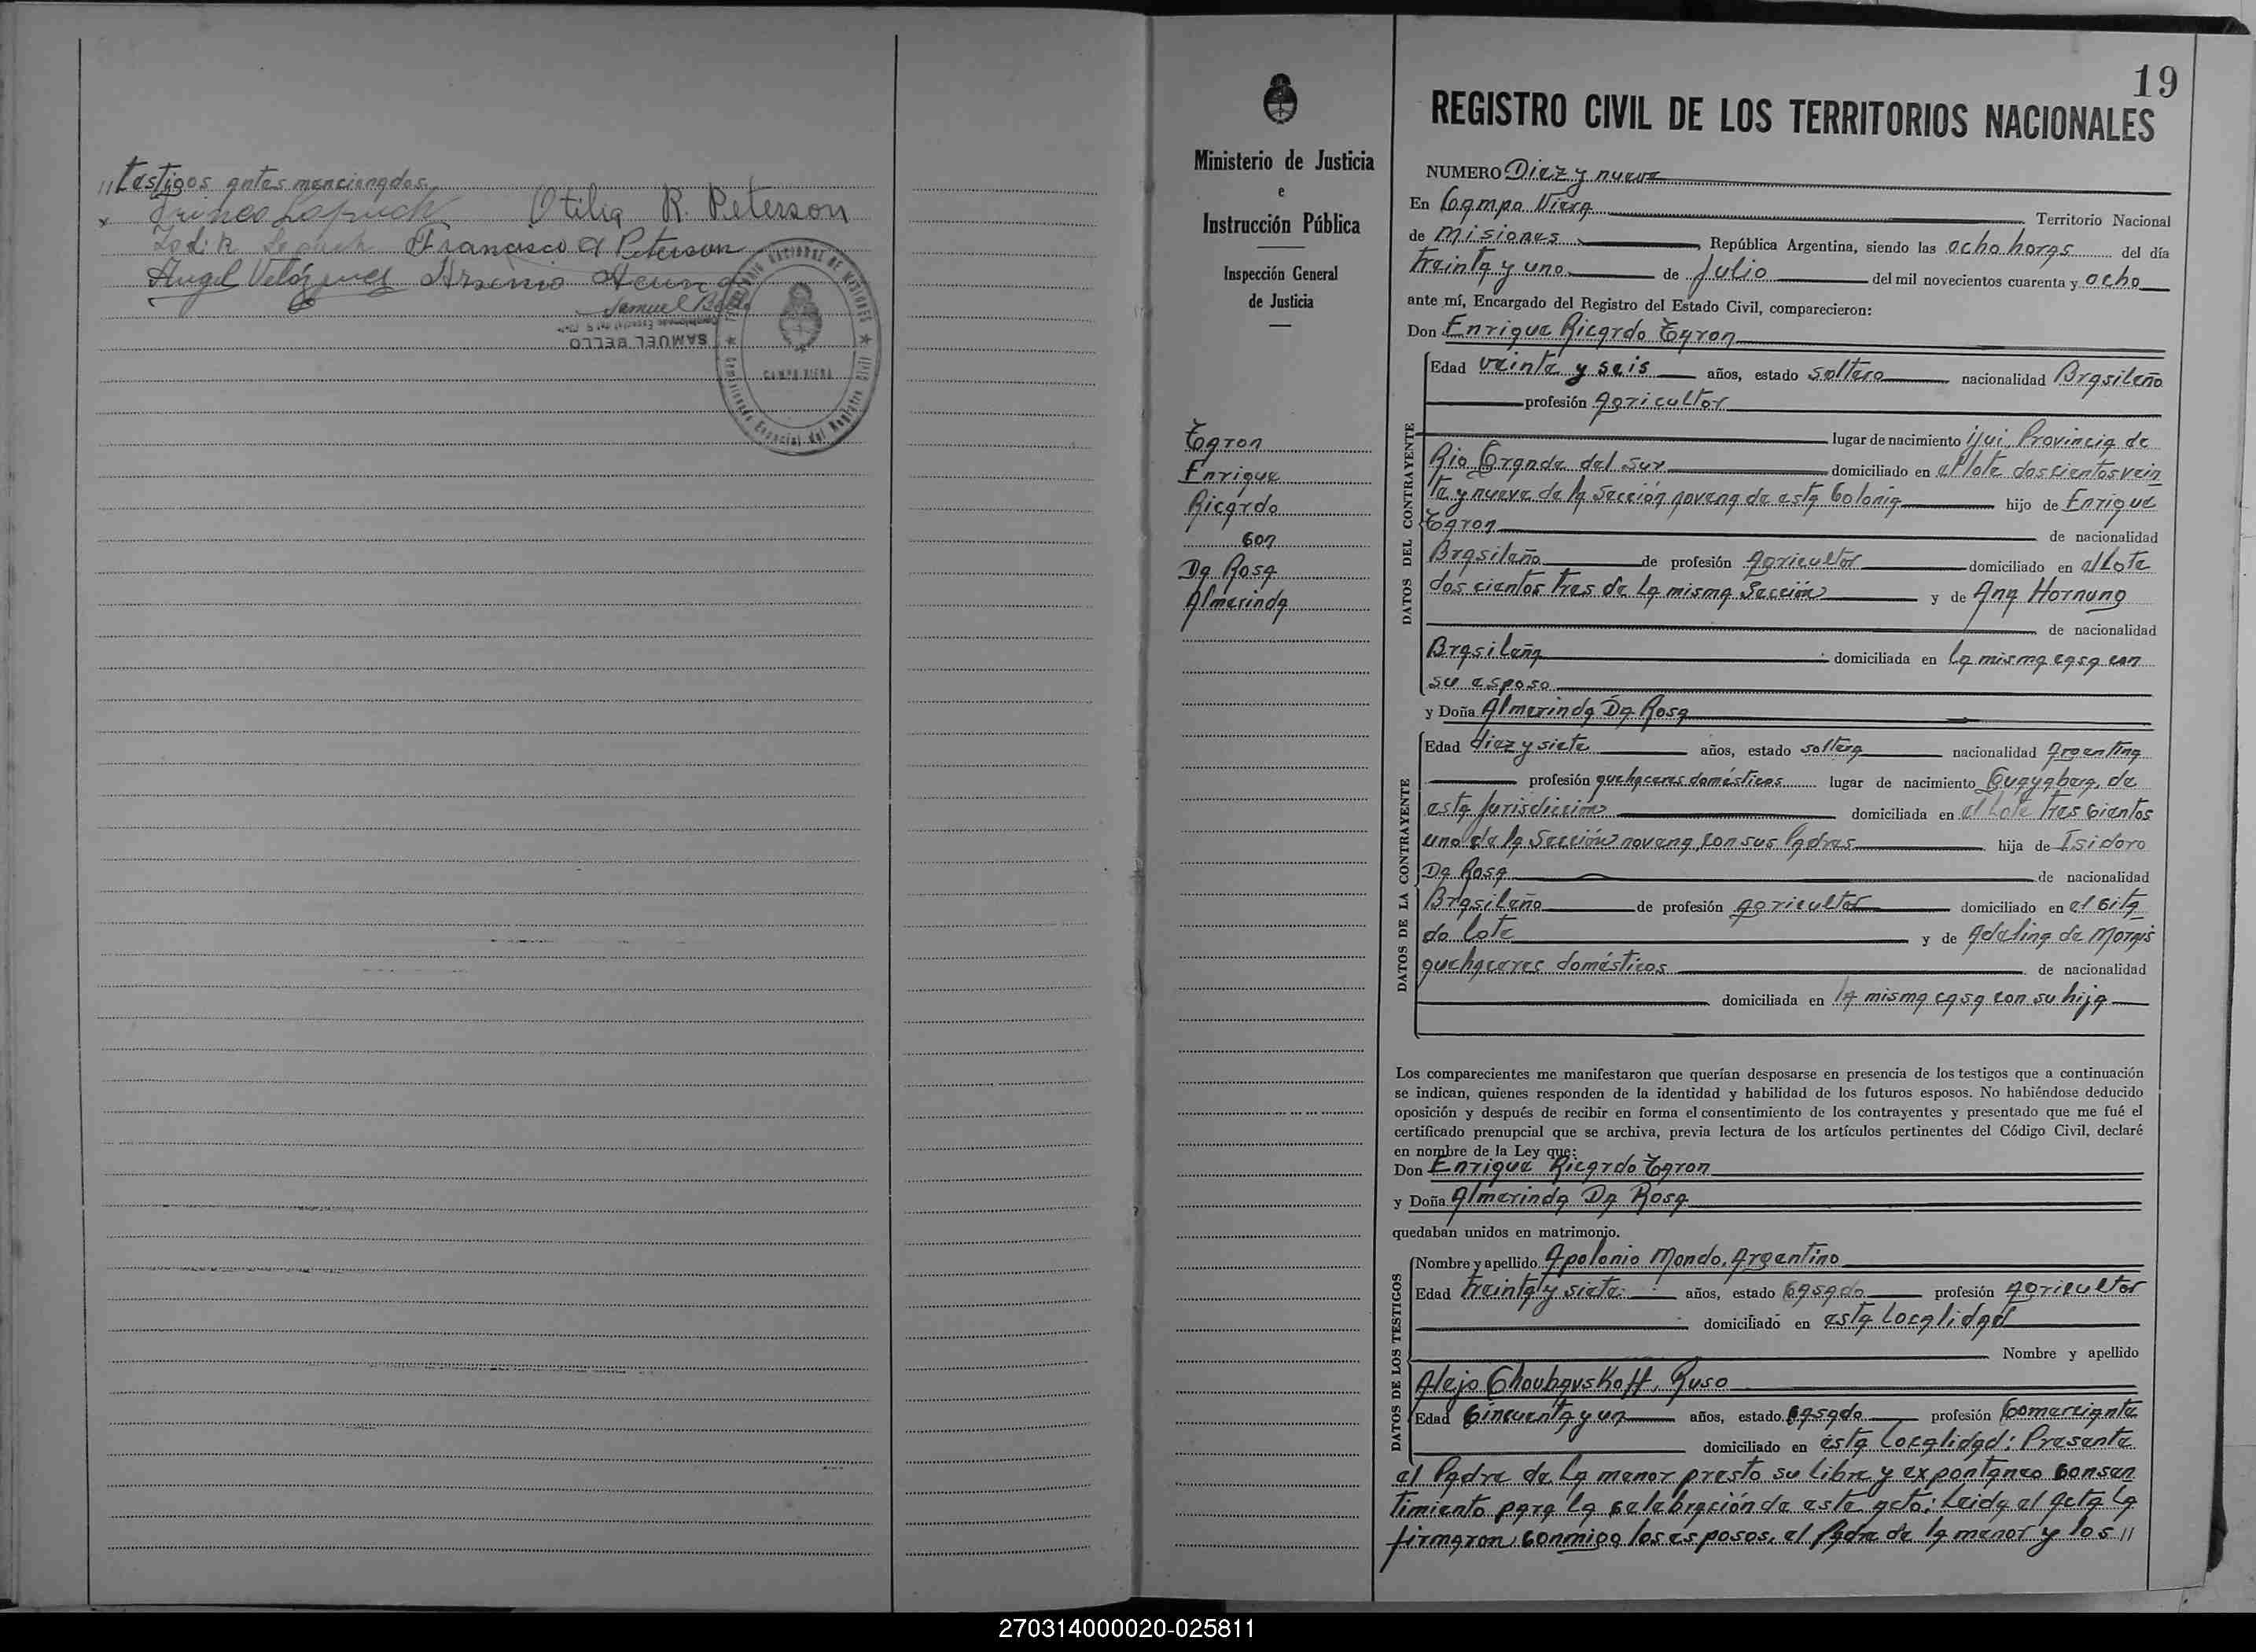 "testigos antes mencionados.
Otilia R. Peterson
Francisco A Peterson
Angel Velázquez Arsenio Acuna
Samuel Bello
SAMUEL BELLO
CAMPO VIERA
19
REGISTRO CIVIL DE LOS TERRITORIOS NACIONALES
Ministerio de Justicia
e
Instrucción Pública
Inspección General
de Justicia
Tyron
Enrique
Ricardo
con
Da Rosa
Almerinda
NUMERO Diez y nueve
En Campo Viera Territorio Nacional
de Misiones República Argentina, siendo las ocho horas del día
treinta y uno de Julio del mil novecientos cuarenta y ocho
ante mí, Encargado del Registro del Estado Civil, comparecieron:
Don Enrique Ricardo Tyron
DATOS DEL CONTRAYENTE
Edad veinte y seis años, estado soltero nacionalidad Brasileño
profesión Agricultor
lugar de nacimiento ijui, Provincia de
Rio Grande del Sur domiciliado en el lote doscientos vein
te y nueve de la Sección novena de esta Colonia hijo de Enrique
Tyron de nacionalidad
Brasileño de profesión Agricultor domiciliado en el Lote
dos cientos tres de la misma Sección y de Ana Hornung
de nacionalidad
Brasileña domiciliada en la misma casa con
su esposo
y Doña Almerinda Da Rosa
DATOS DE LA CONTRAYENTE
Edad diez y siete años, estado soltera nacionalidad Argentina
profesión quehaceres domésticos lugar de nacimiento Guayabera, de
esta Jurisdicción domiciliada en el Lote tres cientos
uno de la Sección novena, con sus Padres hija de Isidoro
Da Rosa de nacionalidad
Brasileño de profesión agricultor domiciliado en el cita
do lote y de Adelina de Morais
quehaceres domésticos de nacionalidad
domiciliada en la misma casa con su hija
Los comparecientes me manifestaron que querían desposarse en presencia de los testigos que a continuación
se indican, quienes responden de la identidad y habilidad de los futuros esposos. No habiéndose deducido
oposición y después de recibir en forma el consentimiento de los contrayentes y presentado que me fué el
certificado prenupcial que se archiva, previa lectura de los artículos pertinentes del Código Civil, declaré
en nombre de la Ley que:
Don Enrique Ricardo Tyron
y Doña Almerinda Da Rosa
quedaban unidos en matrimonio.
DATOS DE LOS TESTIGOS
Nombre y apellido Apolonio Mondo, Argentino
Edad treinta y siete años, estado Casado profesión agricultor
domiciliado en esta Localidad
Nombre y apellido
Alejo Choubavskoff, Ruso
Edad Cincuenta y un años, estado Casado profesión Comerciante
domiciliado en esta Localidad: Presente
el Padre de la menor presto su libre y expontaneo Consen
timiento para la celebración de este acto: Leida el Acta la
firmaron conmigo los esposos, el Padre de la menor y los "
270314000020-025811